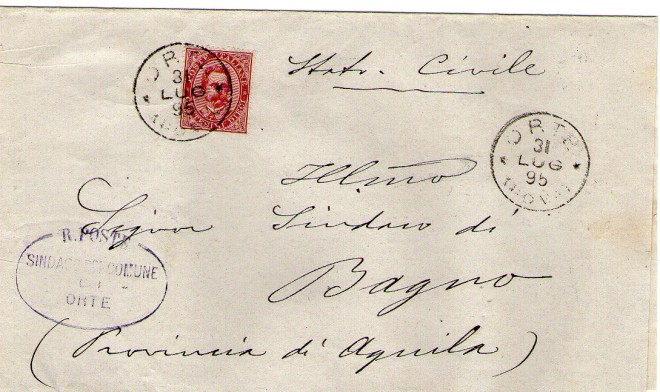 ORTE
31
LUG
95
POSTE ITALIANE
Stato Civile
ORTE
31
LUG
95
Illmo
Signor Sindaco di
R. POSTE
SINDACO DEL COMUNE
DI
ORTE
Bagno
(Provincia di Aquila)